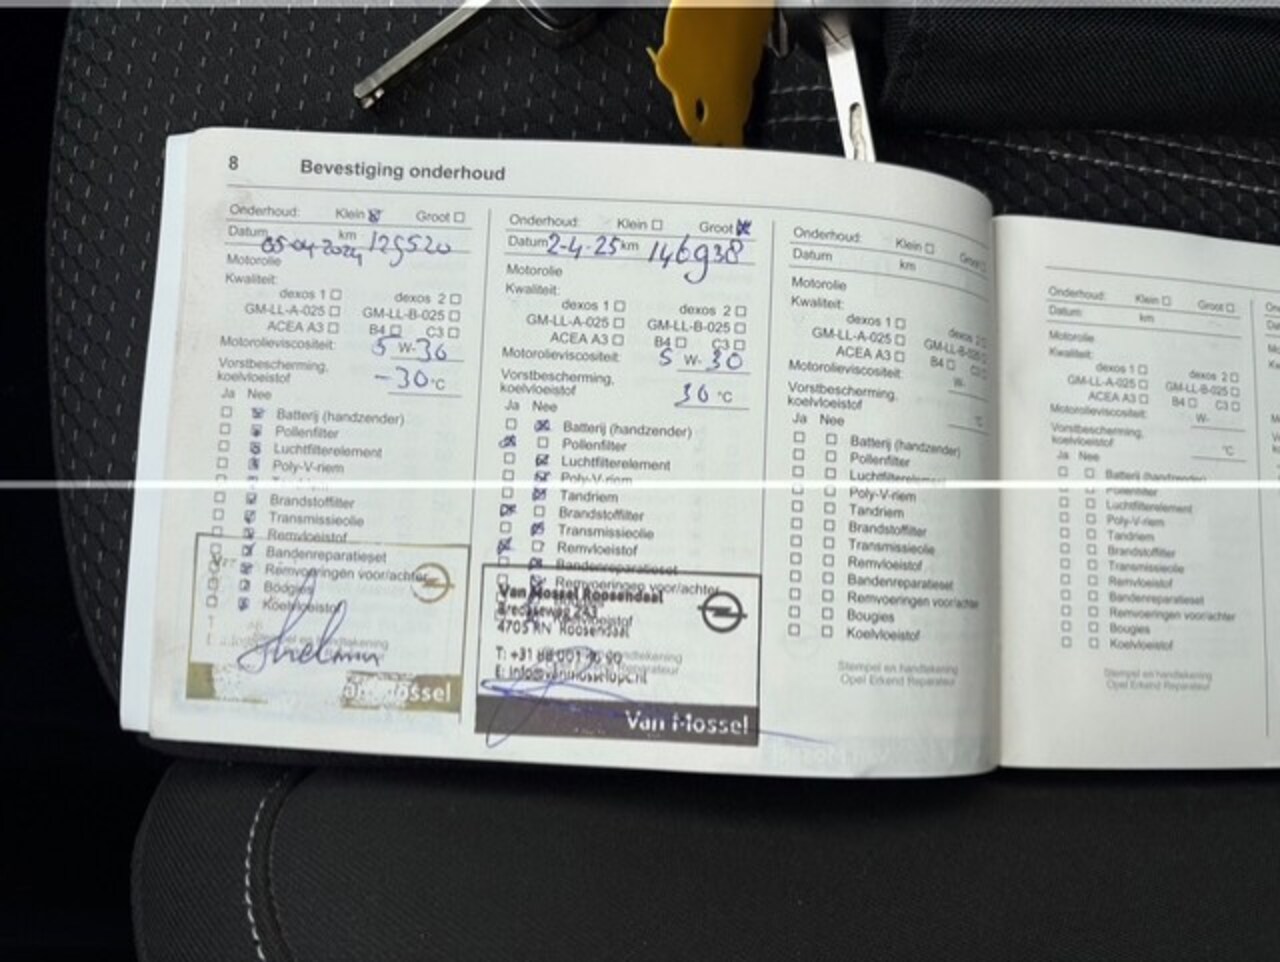 8 Bevestiging onderhoud
Onderhoud: Klein Groot
Datum 05-04-2024 km 125520
Motorolie
Kwaliteit:
dexos 1 dexos 2
GM-LL-A-025 GM-LL-B-025
ACEA A3 B4 C3
Motorolieviscositeit: 5 W- 30
Vorstbescherming,
koelvloeistof -30 °C
Ja Nee
Batterij (handzender)
Pollenfilter
Luchtfilterelement
Poly-V-riem
Brandstoffilter
Transmissieolie
Remvloeistof
Bandenreparatieset
Remvoeringen voor/achter
Bougies
Koelvloeistof
Onderhoud: Klein Groot
Datum 2-4-25 km 146938
Motorolie
Kwaliteit:
dexos 1 dexos 2
GM-LL-A-025 GM-LL-B-025
ACEA A3 B4 C3
Motorolieviscositeit: 5 W- 30
Vorstbescherming,
koelvloeistof 30 °C
Ja Nee
Batterij (handzender)
Pollenfilter
Luchtfilterelement
Poly-V-riem
Tandriem
Brandstoffilter
Transmissieolie
Remvloeistof
Bandenreparatieset
Remvoeringen voor/achter
Van Mossel Roosendaal
4705 RN Roosendaal
Van Mossel
Onderhoud: Klein Groot
Datum km
Motorolie
Kwaliteit:
dexos 1 dexos 2
GM-LL-A-025 GM-LL-B-025
ACEA A3 B4 C3
Motorolieviscositeit: W-
Vorstbescherming,
koelvloeistof °C
Ja Nee
Batterij (handzender)
Pollenfilter
Luchtfilterelement
Poly-V-riem
Tandriem
Brandstoffilter
Transmissieolie
Remvloeistof
Bandenreparatieset
Remvoeringen voor/achter
Bougies
Koelvloeistof
Stempel en handtekening
Opel Erkend Reparateur
Onderhoud: Klein Groot
Datum: km
Motorolie
Kwaliteit:
dexos 1 dexos 2
GM-LL-A-025 GM-LL-B-025
ACEA A3 B4 C3
Motorolieviscositeit: W-
Vorstbescherming,
koelvloeistof °C
Ja Nee
Batterij (handzender)
Pollenfilter
Luchtfilterelement
Poly-V-riem
Tandriem
Brandstoffilter
Transmissieolie
Remvloeistof
Bandenreparatieset
Remvoeringen voor/achter
Bougies
Koelvloeistof
Stempel en handtekening
Opel Erkend Reparateur